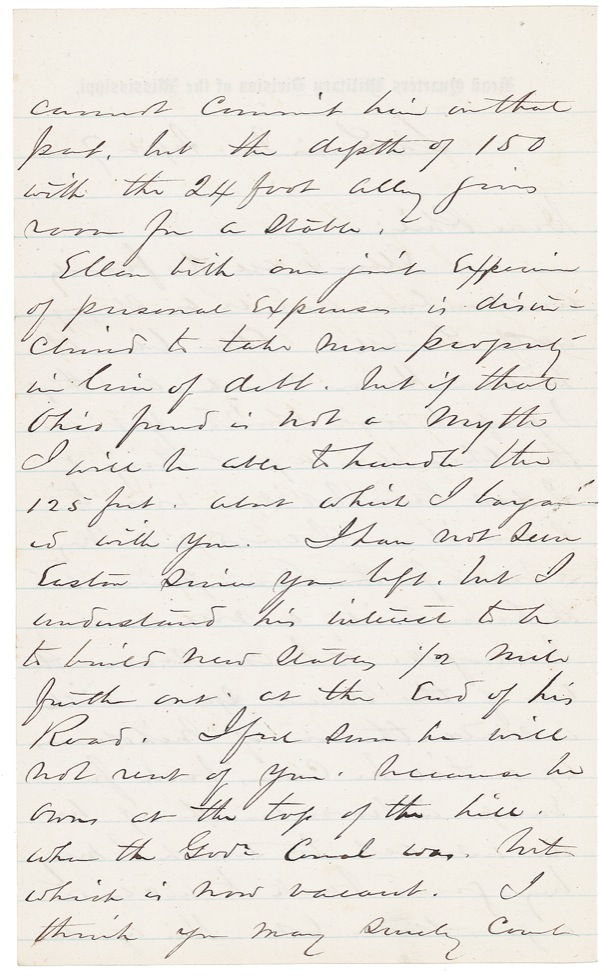 Head Quarters Military Division of the Mississippi,
cannot commit him in that
but the depth of 150
with the 24 foot alley gives
room for a stable.
Ellen with our joint Experience
of personal Expenses is disin-
clined to take more property
in lieu of debt. but if that
Ohio fund is not a Myth
I will be able to handle the
125 feet. about which I bargain
ed with you. I have not seen
Easton since you left. but I
understand his interest to be
to build new stables 1/2 mile
further out. at the End of his
Road. I feel sure he will
not rent of you. because he
owns at the top of the hill.
where the Govr Corral was. but
which is now vacant. I
think you may surely count